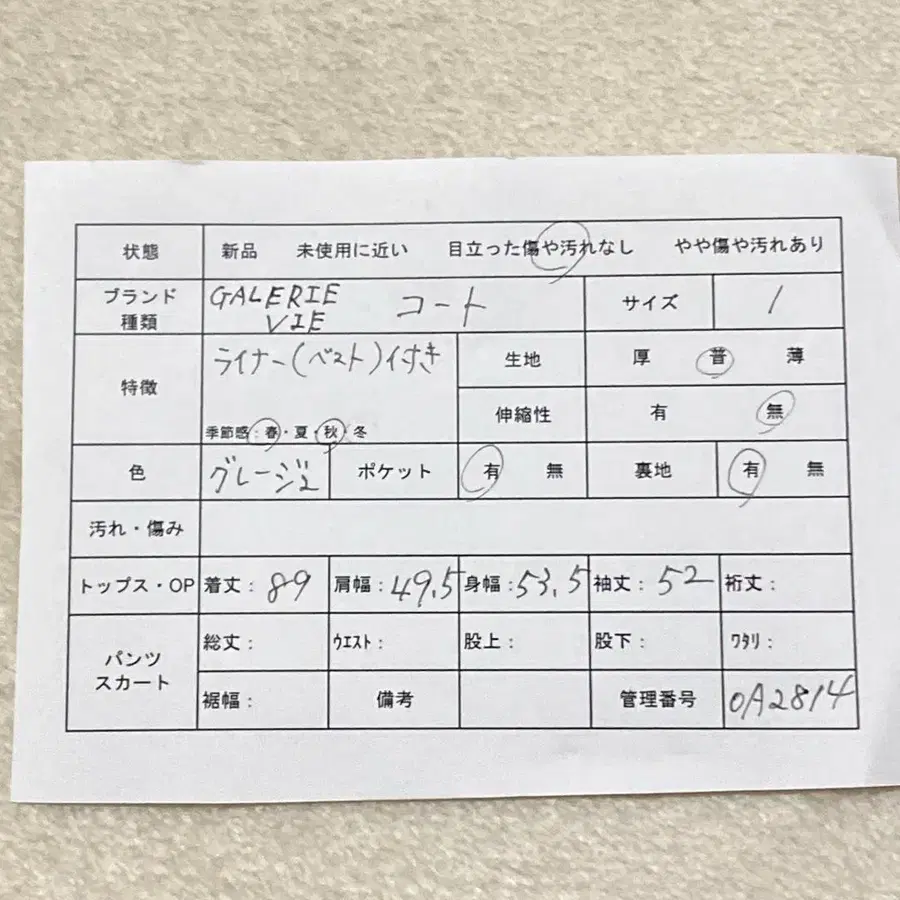 状態 新品 未使用に近い 目立った傷や汚れなし やや傷や汚れあり
ブランド種類 GALERIE VIE コート サイズ 1
特徴 ライナー(ベスト)付き 生地 厚 普 薄
季節感:春・夏・秋・冬 伸縮性 有 無
色 グレージュ ポケット 有 無 裏地 有 無
汚れ・傷み
トップス・OP 着丈: 89 肩幅: 49.5 身幅: 53.5 袖丈: 52 裄丈:
パンツ スカート 総丈: ウエスト: 股上: 股下: ワタリ:
裾幅: 備考 管理番号 OA2814